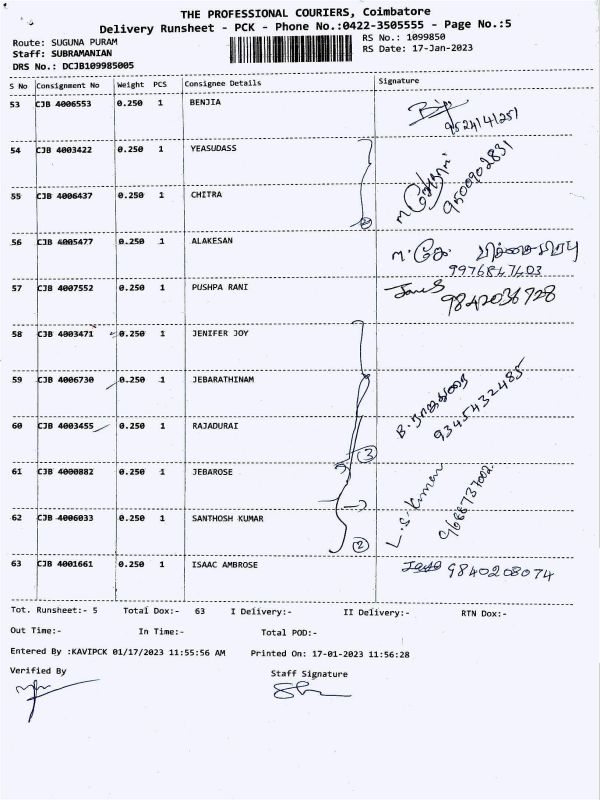 THE PROFESSIONAL COURIERS, Coimbatore
Delivery Runsheet - PCK - Phone No.:0422-3505555 - Page No.:5
Route: SUGUNA PURAM
RS No.: 1099850
Staff: SUBRAMANIAN
RS Date: 17-Jan-2023
DRS No.: DCJB109985005
S No Consignment No Weight PCS Consignee Details Signature
53 CJB 4006553 0.250 1 BENJIA
9524141251
54 CJB 4003422 0.250 1 YEASUDASS
9500902831
55 CJB 4006437 0.250 1 CHITRA
2
56 CJB 4005477 0.250 1 ALAKESAN
9976847403
57 CJB 4007552 0.250 1 PUSHPA RANI
9842036728
58 CJB 4003471 0.250 1 JENIFER JOY
59 CJB 4006730 0.250 1 JEBARATHINAM
9345432485
60 CJB 4003455 0.250 1 RAJADURAI
3
61 CJB 4000882 0.250 1 JEBAROSE
L.S. Kumar
9688737002
62 CJB 4006033 0.250 1 SANTHOSH KUMAR
2
63 CJB 4001661 0.250 1 ISAAC AMBROSE
9840208074
Tot. Runsheet:- 5 Total Dox:- 63 I Delivery:- II Delivery:- RTN Dox:-
Out Time:- In Time:- Total POD:-
Entered By :KAVIPCK 01/17/2023 11:55:56 AM Printed On: 17-01-2023 11:56:28
Verified By
Staff Signature